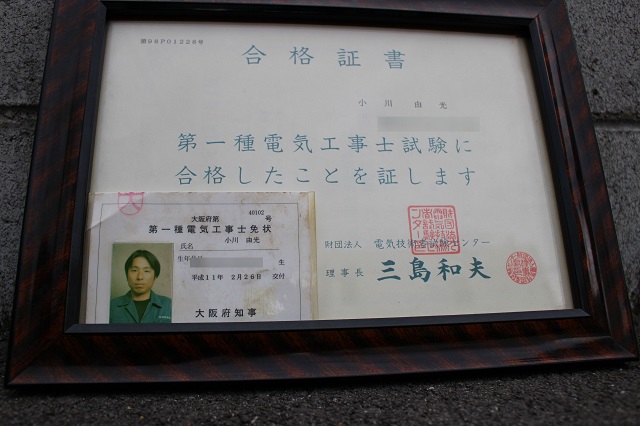 第98P01228号
合格証書
小川 由光
第一種電気工事士試験に
合格したことを証します
財団法人 電気技術者試験センター
理事長 三島和夫
大阪府第 40102 号
第一種電気工事士免状
氏名 小川 由光
生年月日 生
平成11年 2月26日 交付
大阪府知事